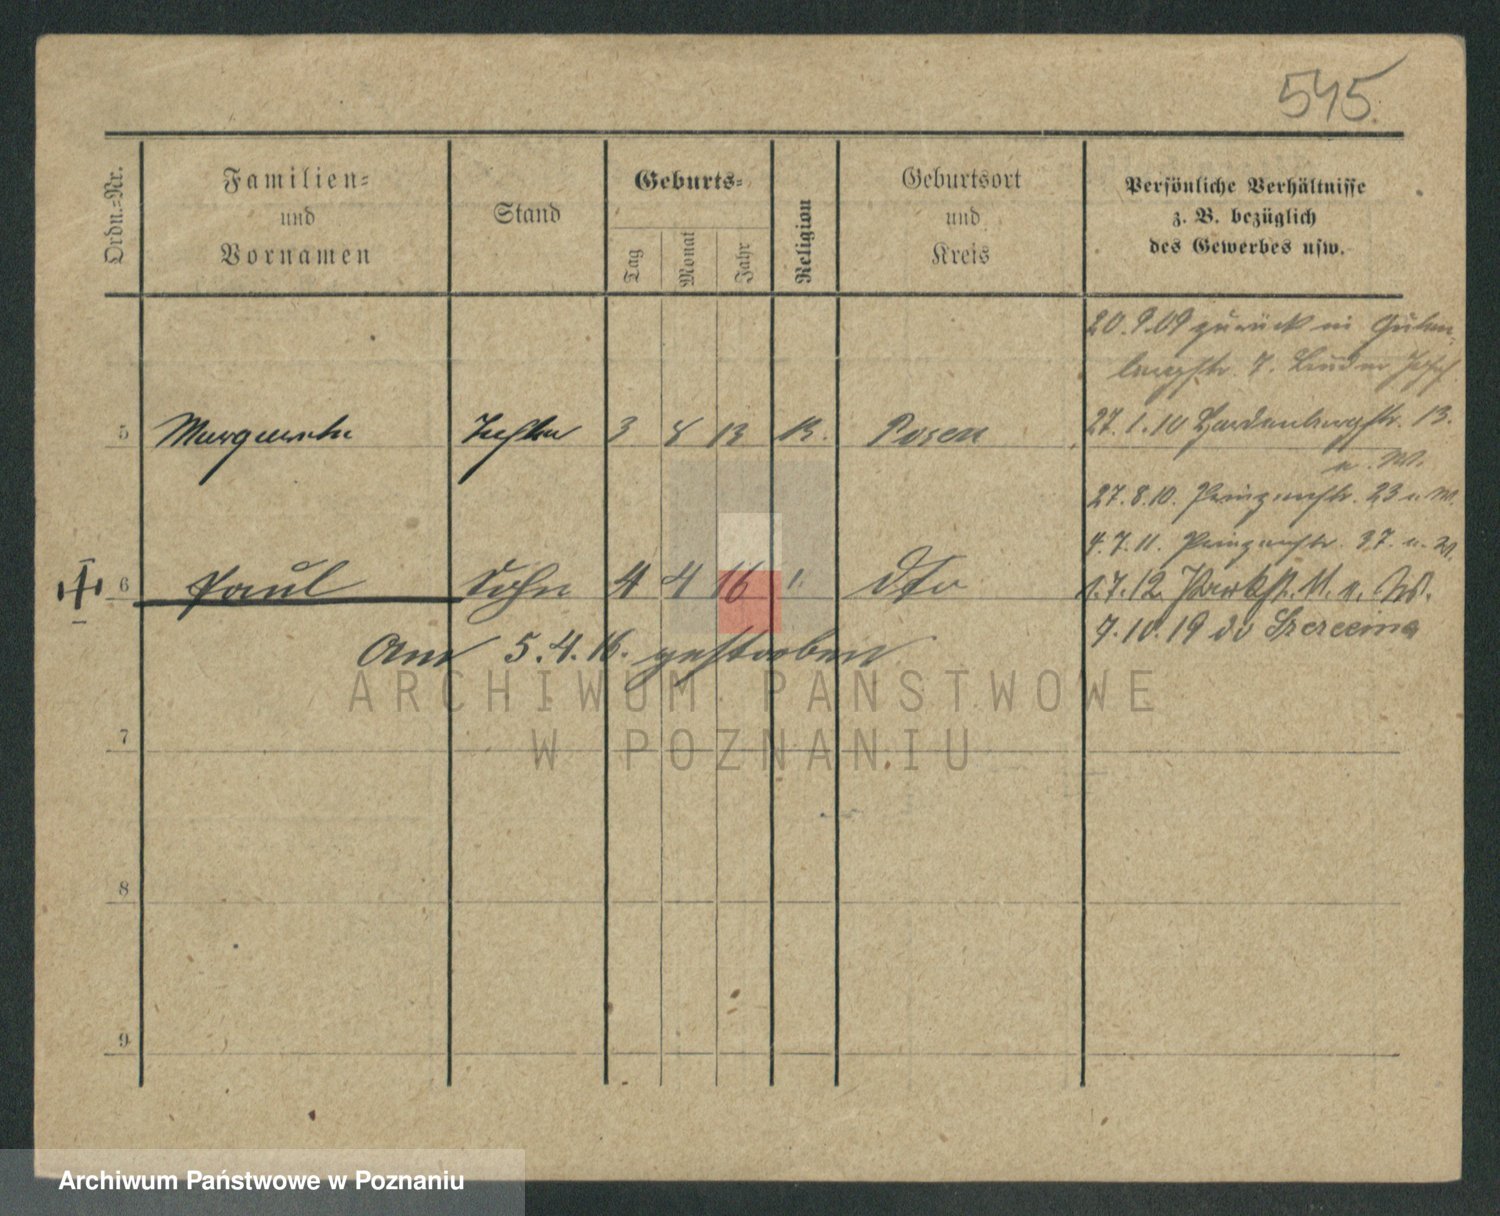 545.
Ordn.-Nr.
Familien-
und
Vornamen
Stand
Geburts-
Tag
Monat
Jahr
Religion
Geburtsort
und
Kreis
Persönliche Verhältnisse
z. B. bezüglich
des Gewerbes usw.
20.9.09 zurück in
7.
5 Margarete Tochter 3 8 13 Posen
27.1.10 Hardenbergstr. 13.
n. W.
27.8.10. Prinzenstr. 23 n. W.
4.7.11. Prinzenstr. 37. n. W.
6 Paul Sohn 4 4 16 dto
1.7.12. Parkstr. 11. n. W.
Am 5.4.16. gestorben
7.10.19 do
7
8
9
ARCHIWUM PAŃSTWOWE
W POZNANIU
Archiwum Państwowe w Poznaniu